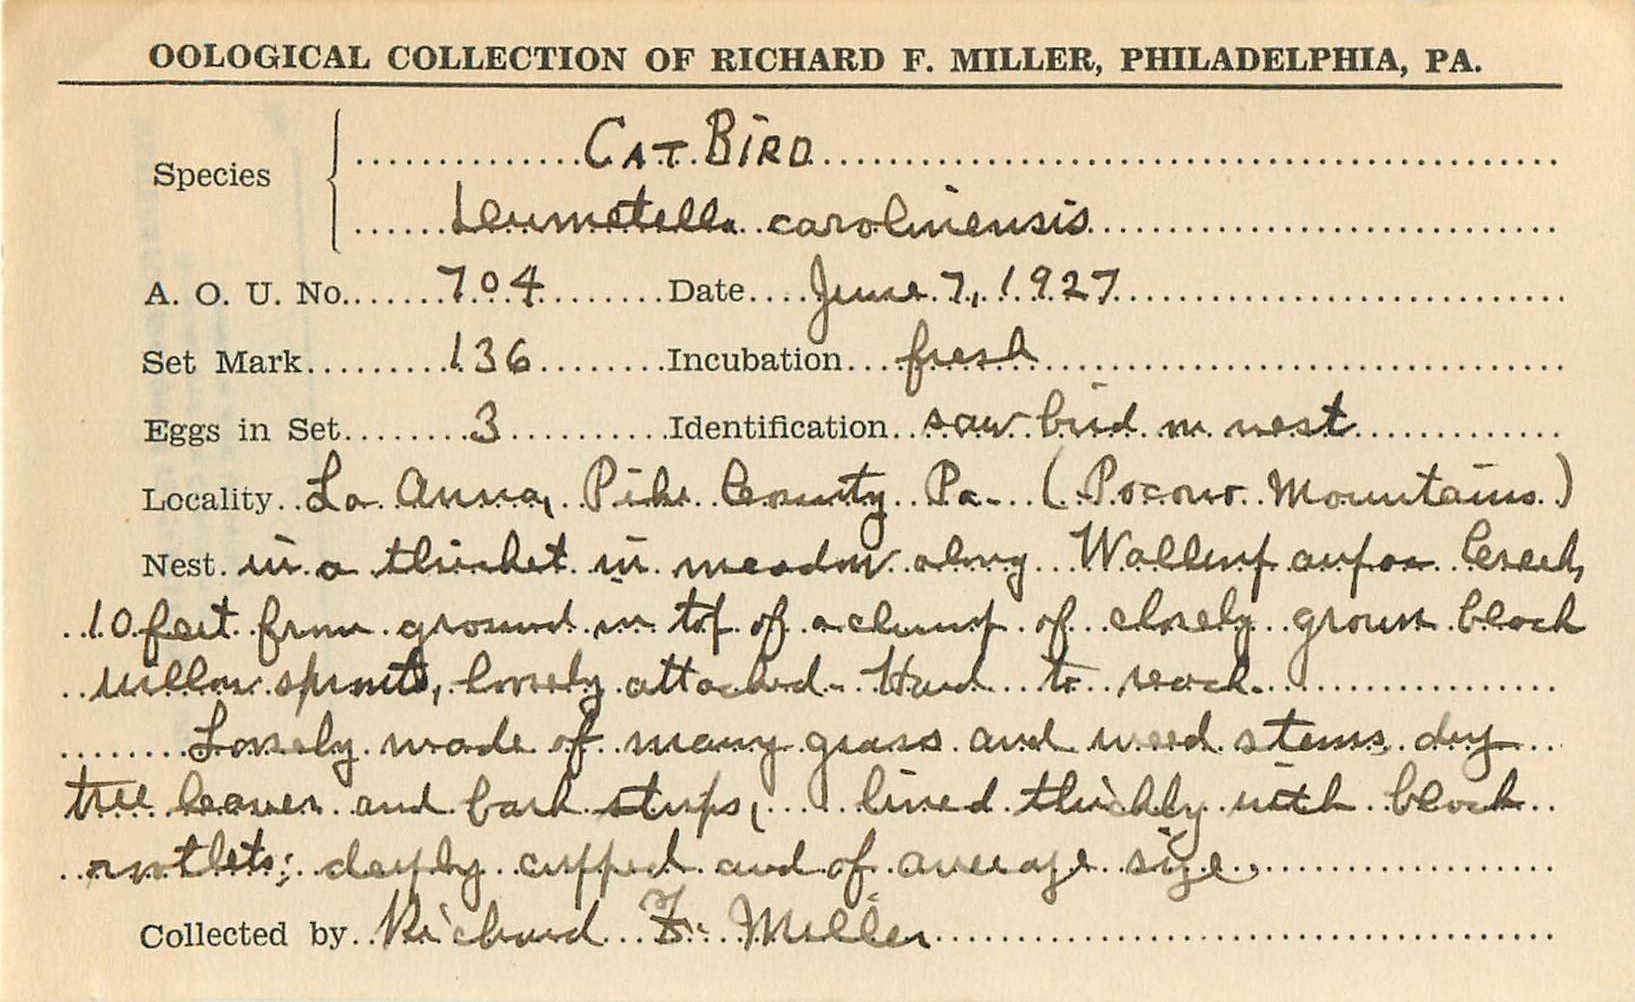 OOLOGICAL COLLECTION OF RICHARD F. MILLER, PHILADELPHIA, PA.
Species
CAT BIRD
Dumetella carolinensis
A. O. U. No. 704 Date June 7, 1927
Set Mark 136 Incubation fresh
Eggs in Set 3 Identification saw bird in nest
Locality La Anna, Pike County Pa. (Pocono Mountains)
Nest in a thicket in meadow along Wallenpaupac Creek,
10 feet from ground in top of a clump of closely grown black
willow sprouts, loosely attached. Hard to reach.
Loosely made of many grass and weed stems, dry
tree leaves and bark strips, lined thickly with black
rootlets; deeply cupped and of average size.
Collected by Richard F. Miller